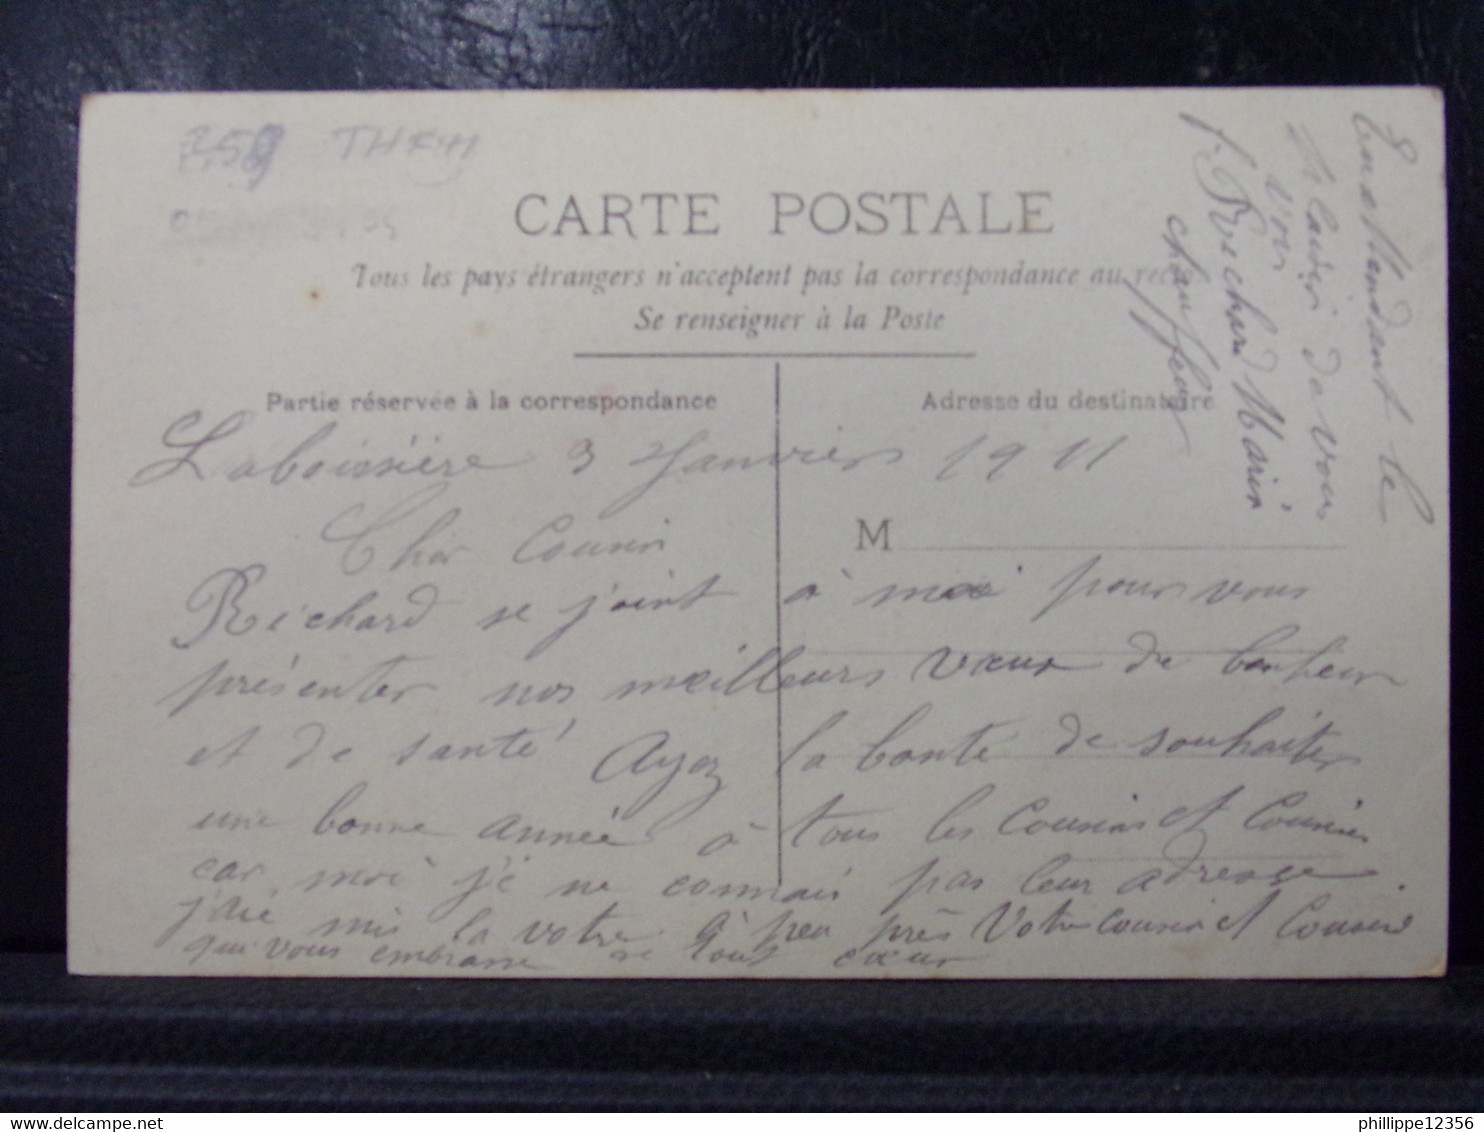 259 THEM
CARTE POSTALE
Tous les pays étrangers n'acceptent pas la correspondance au recto
Se renseigner à la Poste
Partie réservée à la correspondance
Adresse du destinataire
M
Laboissière 3 Janvier 1911
Cher Cousin
Reichard se joint à moi pour vous
présenter nos meilleurs vœux de bonheur
et de santé Ayez la bonté de souhaiter
une bonne année à tous les Cousins et Cousine
car moi je ne connais pas leur adresse
j'aie mis la votre à peu près Votre cousin et Cousine
qui vous embrasse de tout cœur
En attendant le
de vous
voir
Reichard Marin
chauffeur
phillippe12356